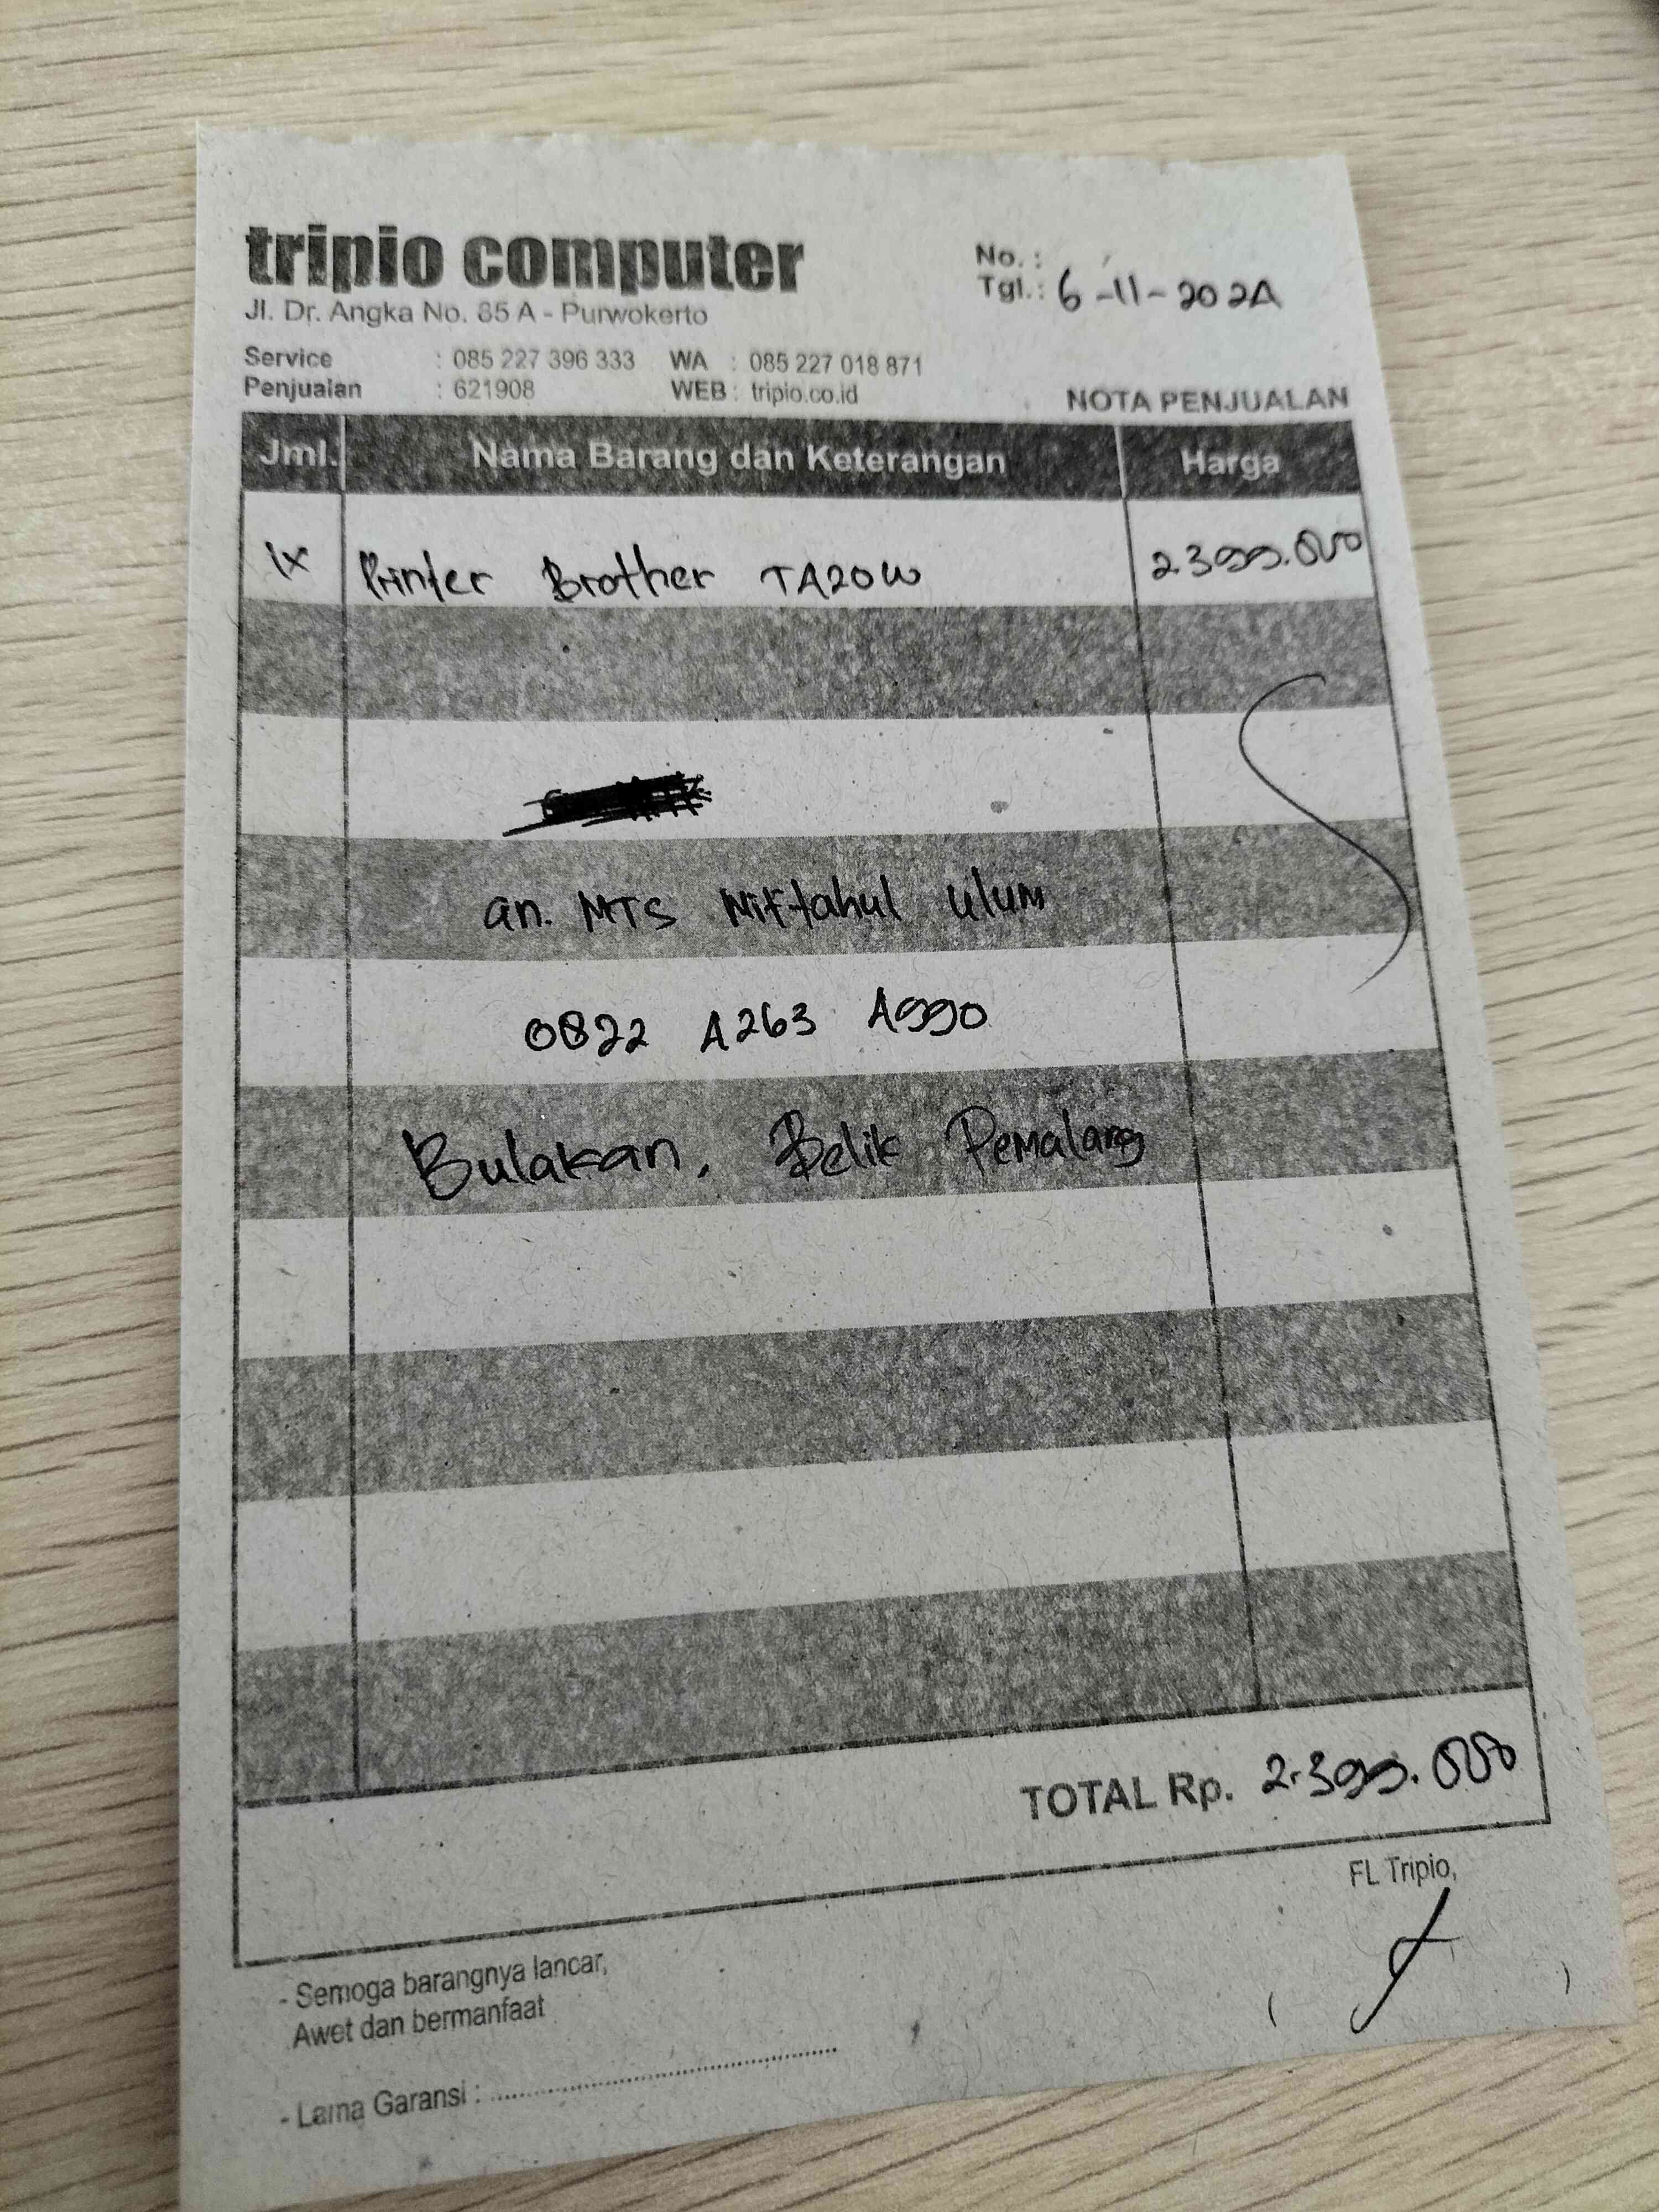 tripio computer
Jl. Dr. Angka No. 85 A - Purwokerto
No. :
Tgl.: 6-11-2024
Service : 085 227 396 333 WA : 085 227 018 871
Penjualan : 621908 WEB : tripio.co.id
NOTA PENJUALAN
Jml. Nama Barang dan Keterangan Harga
1x Printer Brother T420W 2.399.000
an. MTS Miftahul Ulum
0822 4263 4990
Bulakan, Belik Pemalang
TOTAL Rp. 2.399.000
FL Tripio,
- Semoga barangnya lancar,
Awet dan bermanfaat
- Lama Garansi : ........................................
( )